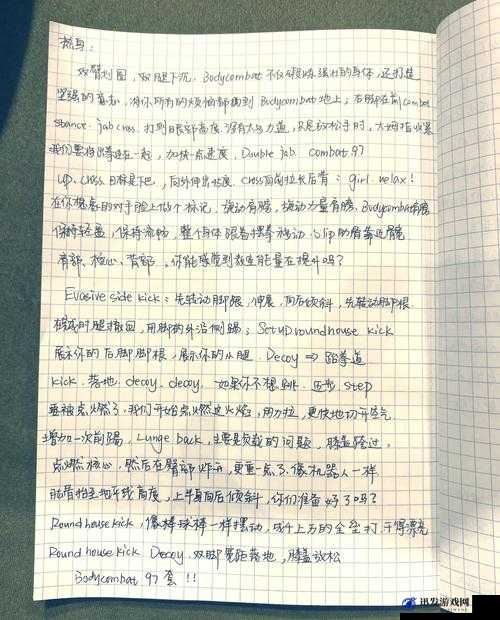 热身：
双臂划圈，双腿下沉. Bodycombat 不仅锻炼强壮的身体，还打造
坚强的意志，将你所有的烦恼都 到 Bodycombat地上；右脚在前combat
stance. jab cross. 打到眼部高度. 没有太多力道，只是放松手时，大拇指收紧
我们要将出拳连在一起，加快一点速度，Double jab. combat 97
up. cross 目标是下巴，向外伸出 长度. cross 向前拉长后背：girl. relax!
在你想象的对手脸上做个标记，旋动有髋，旋动力量有髋. Bodycombat
保持轻盈，保持流畅，整个身体跟着摆拳移动. Slip的肩靠近髋
肩部、核心、背部，你能感觉到 能量在提升吗？
Evasive side kick：先转动脚跟，伸展，向后倾斜，先转动脚跟
时腿撤回，用脚的外沿侧踢；Set up roundhouse kick
展示你的后脚脚跟，展示你的小腿. Decoy ⇒ 跆拳道
kick. 落地. decoy. decoy. 如果你不想跳. 迈步 step
要被点燃了. 我们开始点燃这火焰，用力拉，更快地切开空气.
增加一次前踢，Lunge back，主要是负载的问题，膝盖
点燃核心，然后在臀部炸开，更重一点了. 像机器人一样
后倾斜，你们准备好了吗？
Roundhouse kick，像棒球棒一样摆动，成千上万的全垒打，干得漂亮
Roundhouse kick Decoy. 双脚宽距落地，膝盖放松
Bodycombat 97 套!!
迅发游戏网